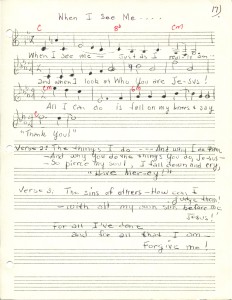 17)
When I See Me.....
C B♭ Cm7
When I see me — Just as I really am
and when I look at Who You are Jesus!
Cm
All I can do is fall on my knees & say
C
"Thank You!"
Verse 2: The things I do --- And why I do them,
-And why You do the things You do, Jesus-
-So pierce my soul, I fall down and cry,
"Have Mercy!"
Verse 3. The sins of others — How can I
judge them!
-with all my own sin before me
Jesus!
For all I've done
and for all that I am —
Forgive me!